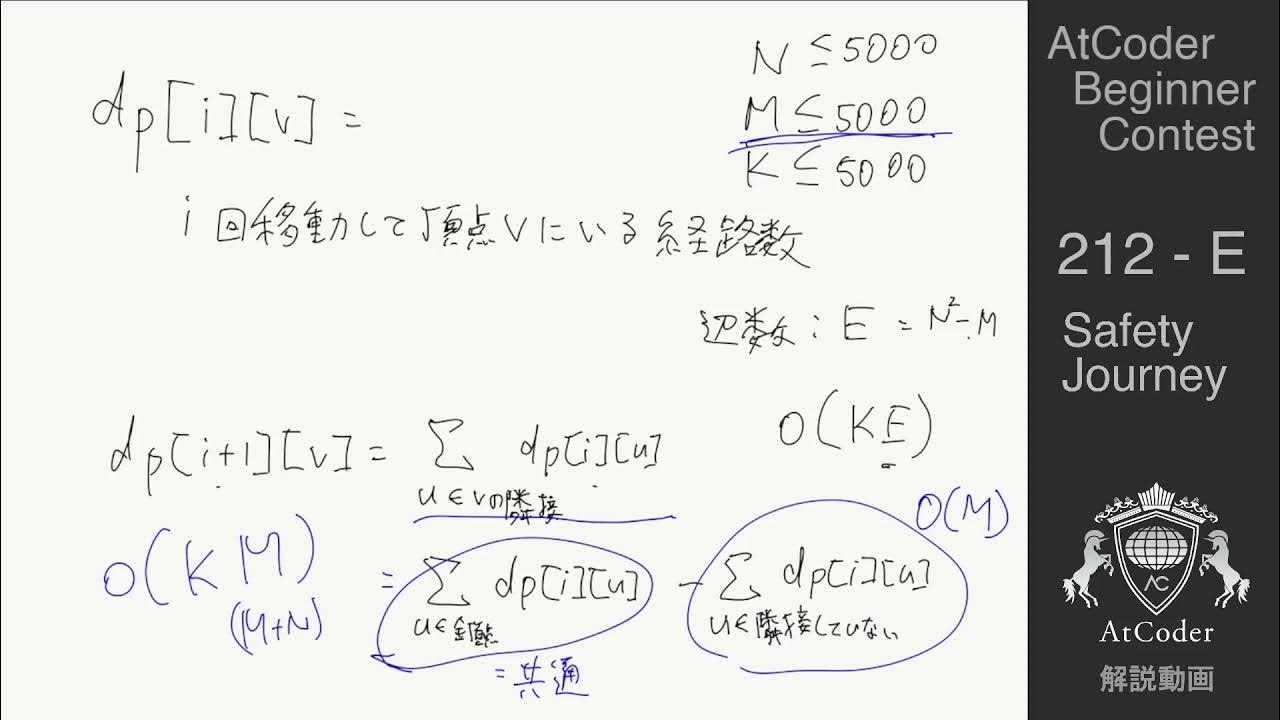 N ≤ 5000
M ≤ 5000
K ≤ 5000
dp[i][v] =
i 回移動して頂点vにいる経路数
辺数: E = N²-M
O(KE)
dp[i+1][v] = Σ dp[i][u]
u∈vの隣接
= Σ dp[i][u] - Σ dp[i][u]
u∈全頂点 u∈隣接していない
O(M)
= 共通
O(KM)
(M+N)
AtCoder
Beginner
Contest
212 - E
Safety
Journey
AC
AtCoder
解説動画